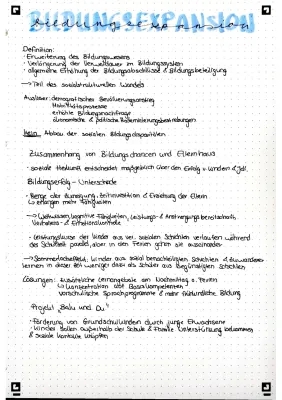 BILDUNGSEXPANSION
Definition:
- Erweiterung des Bildungswesens
- Verlängerung der Verweildauer im Bildungssystem
- allgemeine Erhöhung der Bildungsabschlüsse & Bildungsbeteiligung
→ Teil des sozialstrukturellen Wandels
Auslöser: demografischer Bevölkerungsanstieg
erhöhte Bildungsnachfrage
ökonomische & politische Modernisierungsbestrebungen
kein Abbau der sozialen Bildungsdisparitäten
Zusammenhang von Bildungschancen und Elternhaus
- soziale Herkunft entscheidet maßgeblich über den Erfolg v. Kindern & Jgl.
Bildungserfolg - Unterschiede
- Menge der Zuneigung, Zeitinvestition & Erziehung der Eltern
↳ erlangen mehr Fähigkeiten
→ kognitive Fähigkeiten, Leistungs- & Anstrengungsbereitschaft,
Verhaltens- & Emotionskontrolle
- Leistungskurve der Kinder aus ver. sozialen Schichten verlaufen während
der Schulzeit parallel, aber in den Ferien gehen sie auseinander
→ Sommerlocheffekt: Kinder aus sozial benachteiligten Schichten & Einwanderer
lernen in dieser Zeit weniger dazu als Schüler aus begünstigten Schichten
Lösungen: zusätzliche Lernangebote am Nachmittag o. Ferien
↳ Konzentration auf Basiskompetenzen
vorschulische Sprachprogramme & mehr frühkindliche Bildung
Projekt „Balu und Du“
- Förderung von Grundschulkindern durch junge Erwachsene
- Kinder sollen außerhalb der Schule & Familie Unterstützung bekommen
& soziale Kontakte knüpfen